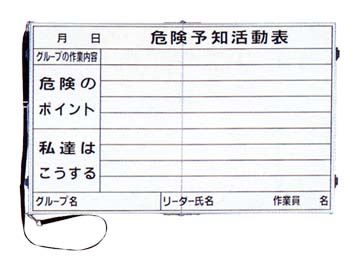 月 日 危険予知活動表
グループの作業内容
危険の
ポイント
私達は
こうする
グループ名 リーダー氏名 作業員 名